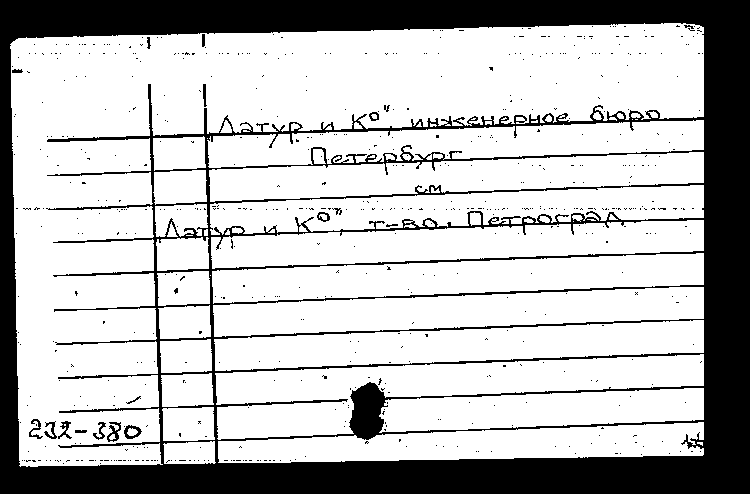 „Латур и К⁰", инженерное бюро
Петербург
см.
„Латур и К⁰", т-во. Петроград
232-380